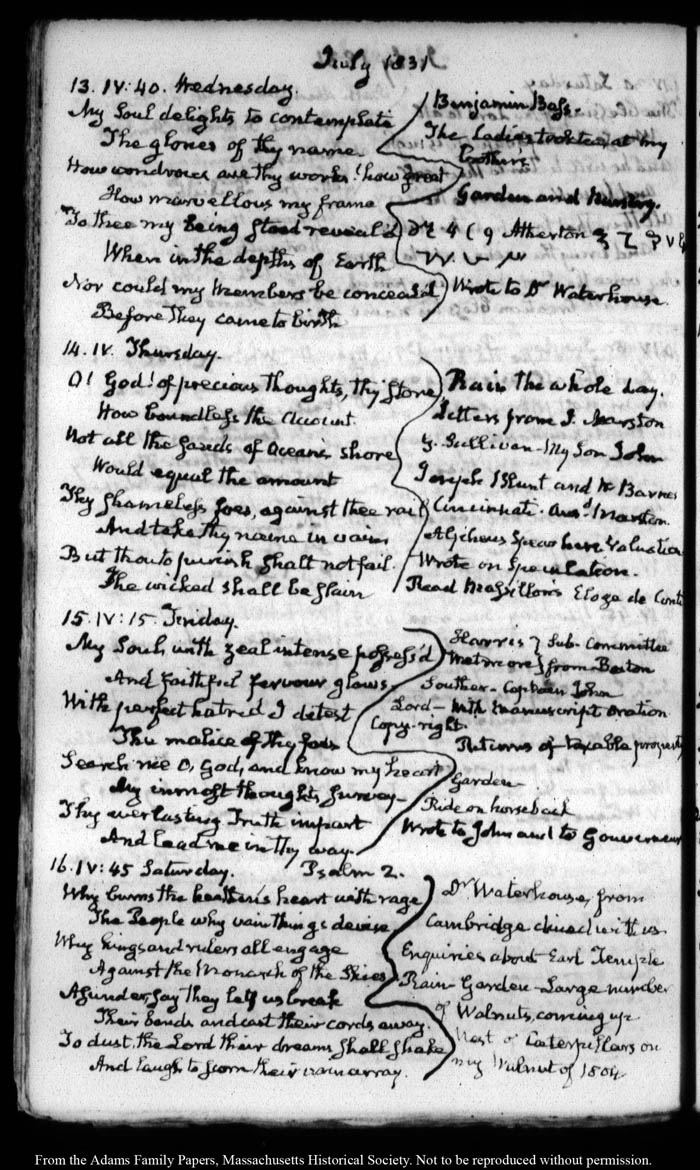 July 1831
13. IV:40. Wednesday.
My Soul delights to contemplate
The glories of thy name
How wondrous are thy works! how great
How marvellous my frame
To thee my being stood reveal'd
When in the depths of Earth
Nor could my members be conceal'd
Before they came to birth
Benjamin Bass.
The Ladies took tea at my
Brothers
Garden and Nursery.
Atherton
Wrote to Dr Waterhouse
14. IV. Thursday.
O! God! of precious thoughts, thy store
How boundless the Account
Not all the sands of Oceans shore
Would equal the amount
Thy shameless foes, against thee rail
And take thy name in vain
But thou to punish shalt not fail.
The wicked shall be slain
Rain the whole day.
Letters from J. Marston
Sullivan - My Son John
Joseph Blunt and Barnes
Cincinnati. Ansd Marston.
Valuation
Wrote on Speculation.
Read Massillon's Eloge de Conti
15. IV:15. Friday.
My Soul, with zeal intense possess'd
And faithful fervour glows,
With perfect hatred I detest
The malice of thy foes
Search me O, God, and know my heart
My inmost thoughts survey-
Thy everlasting Truth impart
And lead me in thy way.
Harris } Sub-Committee
Wetmore } from Boston
Souther - Captain John
Lord - with manuscript oration
Copy-right
Returns of taxable property
Garden
Ride on horseback
Wrote to John and to Gouverneur
16. IV:45 Saturday. Psalm 2.
Why burns the heathen's heart with rage
The People why vain things devise
Why kings and rulers all engage
Against the Monarch of the Skies
Asunder, say they let us break
Their bonds and cast their cords away.
To dust, the Lord their dreams shall shake
And laugh to scorn their vain array.
Dr Waterhouse, from
Cambridge dined with us
Enquiries about Earl Temple
Rain - Garden - Large number
of Walnuts, coming up
Nest of Caterpillars on
my Walnut of 1804
From the Adams Family Papers, Massachusetts Historical Society. Not to be reproduced without permission.